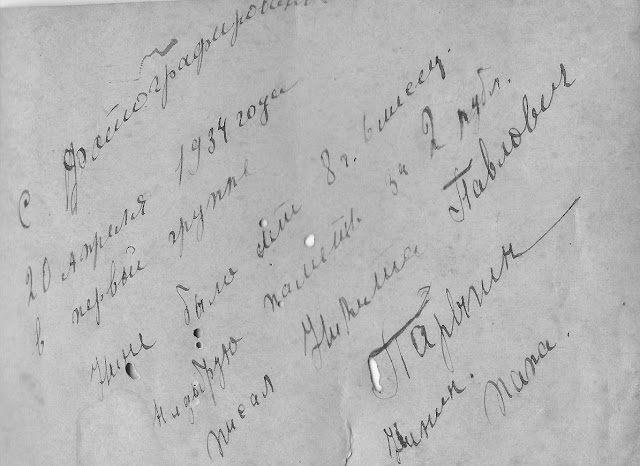 С Фотографирован
20 апреля 1934 года
в первой группе
Нине было лет 8 г. 6 месяц.
на память за 2 рубл.
писал Никита Павлович
Парыгин
Нинин. папа.